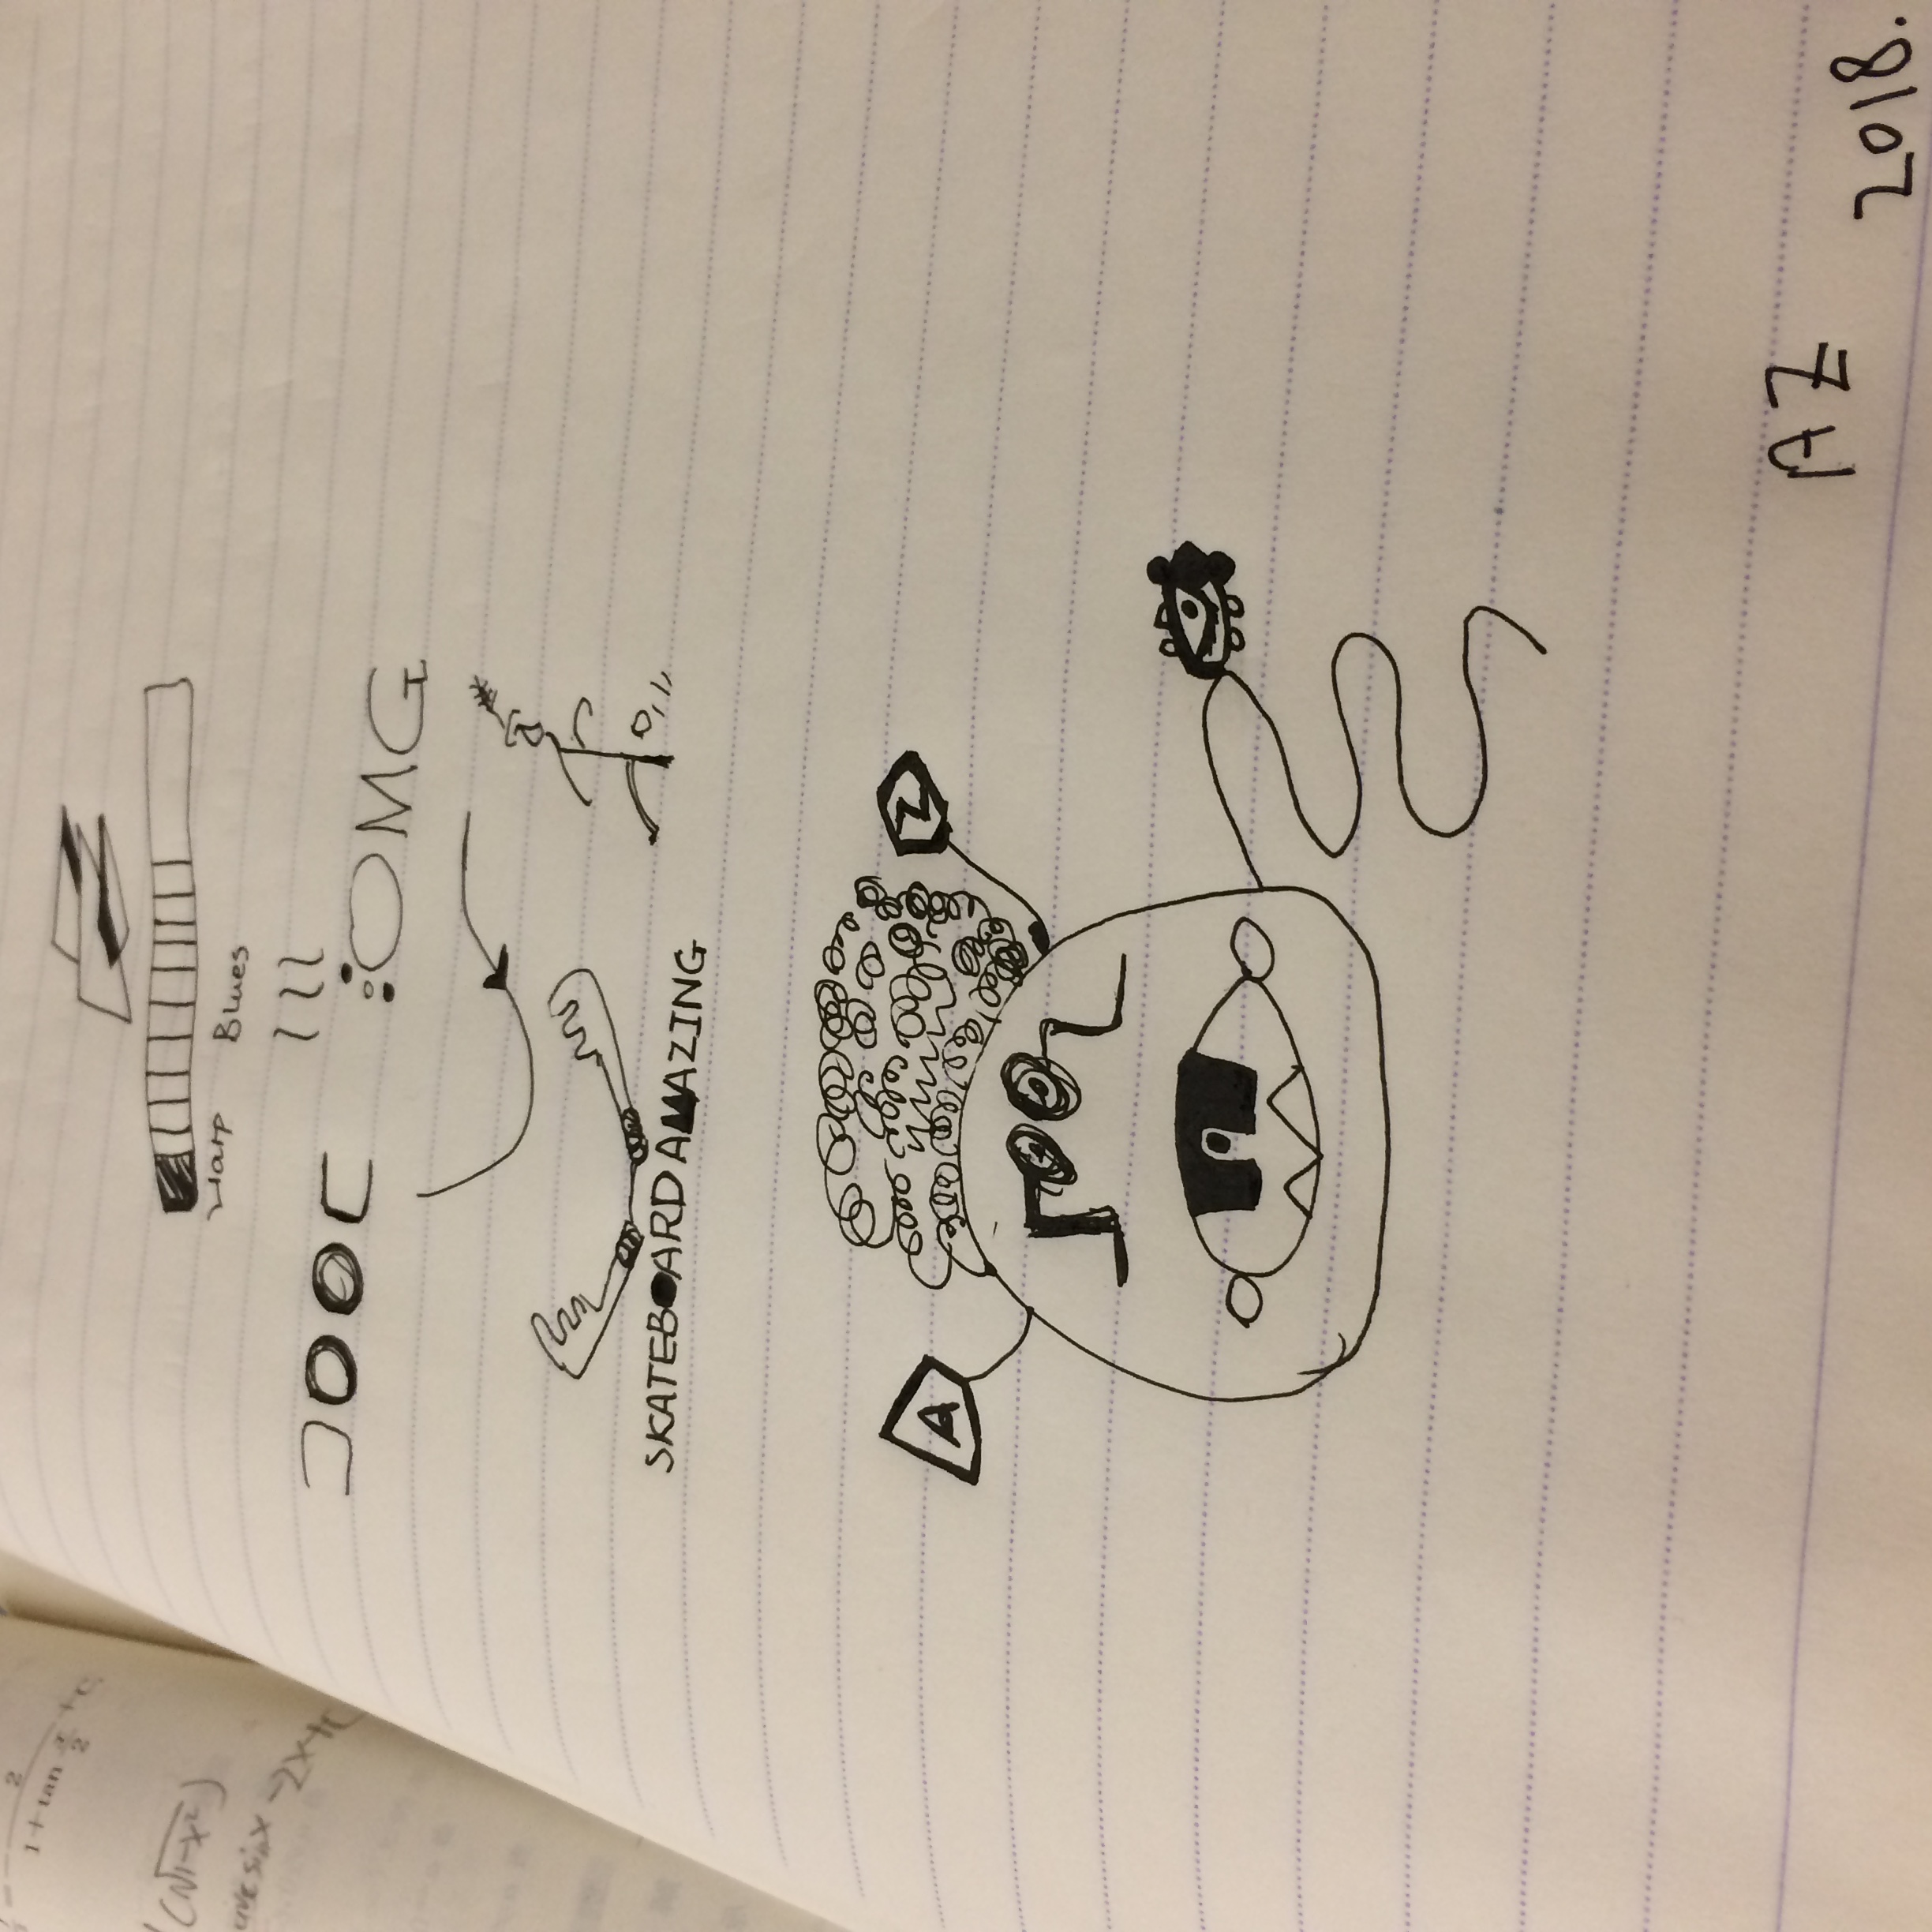 2
1+tan x/2 +C
(√1-x²)
arc sin x -2x+C
Harp Blues
OMG
SKATEBOARD AMAZING
A
Z
AZ
2018.